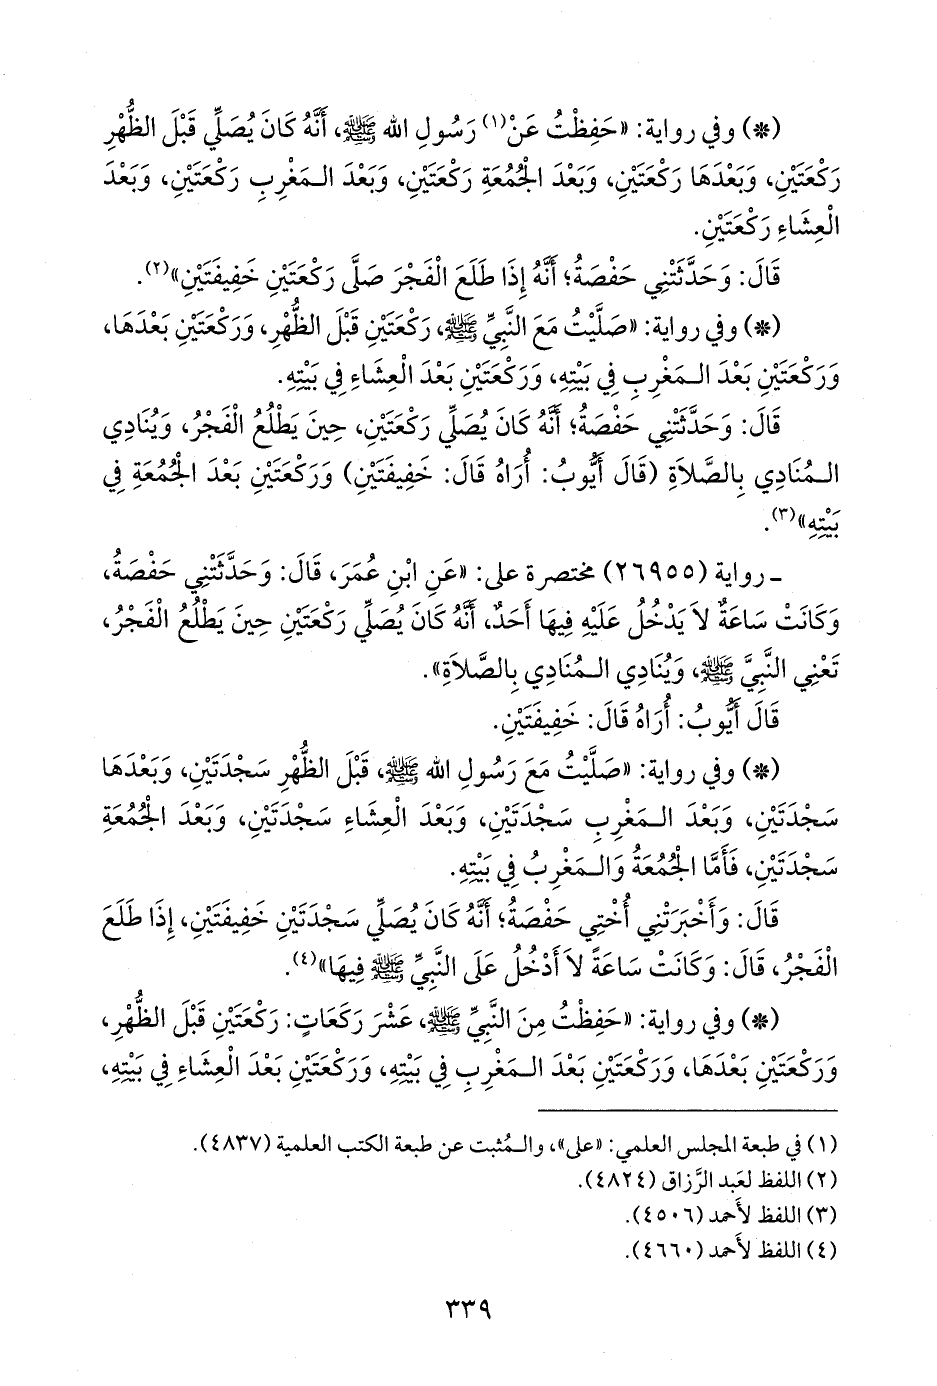 (*) وفي رواية: «حَفِظْتُ عَنْ(١) رَسُولِ الله ﷺ، أَنَّهُ كَانَ يُصَلِّي قَبْلَ الظُّهْرِ
رَكْعَتَيْنِ، وَبَعْدَهَا رَكْعَتَيْنِ، وَبَعْدَ الْجُمُعَةِ رَكْعَتَيْنِ، وَبَعْدَ الـمَغْرِبِ رَكْعَتَيْنِ، وَبَعْدَ
الْعِشَاءِ رَكْعَتَيْنِ.
قَالَ: وَحَدَّثَتْنِي حَفْصَةُ؛ أَنَّهُ إِذَا طَلَعَ الْفَجْرَ صَلَّى رَكْعَتَيْنِ خَفِيفَتَيْنِ»(٢).
(*) وفي رواية: «صَلَّيْتُ مَعَ النَّبِيِّ ﷺ، رَكْعَتَيْنِ قَبْلَ الظُّهْرِ، وَرَكْعَتَيْنِ بَعْدَهَا،
وَرَكْعَتَيْنِ بَعْدَ الـمَغْرِبِ فِي بَيْتِهِ، وَرَكْعَتَيْنِ بَعْدَ الْعِشَاءِ فِي بَيْتِهِ.
قَالَ: وَحَدَّثَتْنِي حَفْصَةُ؛ أَنَّهُ كَانَ يُصَلِّي رَكْعَتَيْنِ، حِينَ يَطْلُعُ الْفَجْرُ، وَيُنَادِي
الـمُنَادِي بِالصَّلاَةِ (قَالَ أَيُّوبُ: أُرَاهُ قَالَ: خَفِيفَتَيْنِ) وَرَكْعَتَيْنِ بَعْدَ الْجُمُعَةِ فِي
بَيْتِهِ»(٣).
ـ رواية (٢٦٩٥٥) مختصرة على: «عَنِ ابْنِ عُمَرَ، قَالَ: وَحَدَّثَتْنِي حَفْصَةُ،
وَكَانَتْ سَاعَةٌ لاَ يَدْخُلُ عَلَيْهِ فِيهَا أَحَدٌ، أَنَّهُ كَانَ يُصَلِّي رَكْعَتَيْنِ حِينَ يَطْلُعُ الْفَجْرُ،
تَعْنِي النَّبِيَّ ﷺ، وَيُنَادِي الـمُنَادِي بِالصَّلاَةِ».
قَالَ أَيُّوبُ: أُرَاهُ قَالَ: خَفِيفَتَيْنِ.
(*) وفي رواية: «صَلَّيْتُ مَعَ رَسُولِ الله ﷺ، قَبْلَ الظُّهْرِ سَجْدَتَيْنِ، وَبَعْدَهَا
سَجْدَتَيْنِ، وَبَعْدَ الـمَغْرِبِ سَجْدَتَيْنِ، وَبَعْدَ الْعِشَاءِ سَجْدَتَيْنِ، وَبَعْدَ الْجُمُعَةِ
سَجْدَتَيْنِ، فَأَمَّا الْجُمُعَةُ وَالـمَغْرِبُ فِي بَيْتِهِ.
قَالَ: وَأَخْبَرَتْنِي أُخْتِي حَفْصَةُ؛ أَنَّهُ كَانَ يُصَلِّي سَجْدَتَيْنِ خَفِيفَتَيْنِ، إِذَا طَلَعَ
الْفَجْرُ، قَالَ: وَكَانَتْ سَاعَةً لاَ أَدْخُلُ عَلَى النَّبِيِّ ﷺ فِيهَا»(٤).
(*) وفي رواية: «حَفِظْتُ مِنَ النَّبِيِّ ﷺ، عَشْرَ رَكَعَاتٍ: رَكْعَتَيْنِ قَبْلَ الظُّهْرِ،
وَرَكْعَتَيْنِ بَعْدَهَا، وَرَكْعَتَيْنِ بَعْدَ الـمَغْرِبِ فِي بَيْتِهِ، وَرَكْعَتَيْنِ بَعْدَ الْعِشَاءِ فِي بَيْتِهِ،
(١) في طبعة المجلس العلمي: «على»، والـمُثبت عن طبعة الكتب العلمية (٤٨٣٧).
(٢) اللفظ لعَبد الرَّزاق (٤٨٢٤).
(٣) اللفظ لأَحمد (٤٥٠٦).
(٤) اللفظ لأَحمد (٤٦٦٠).
٣٣٩